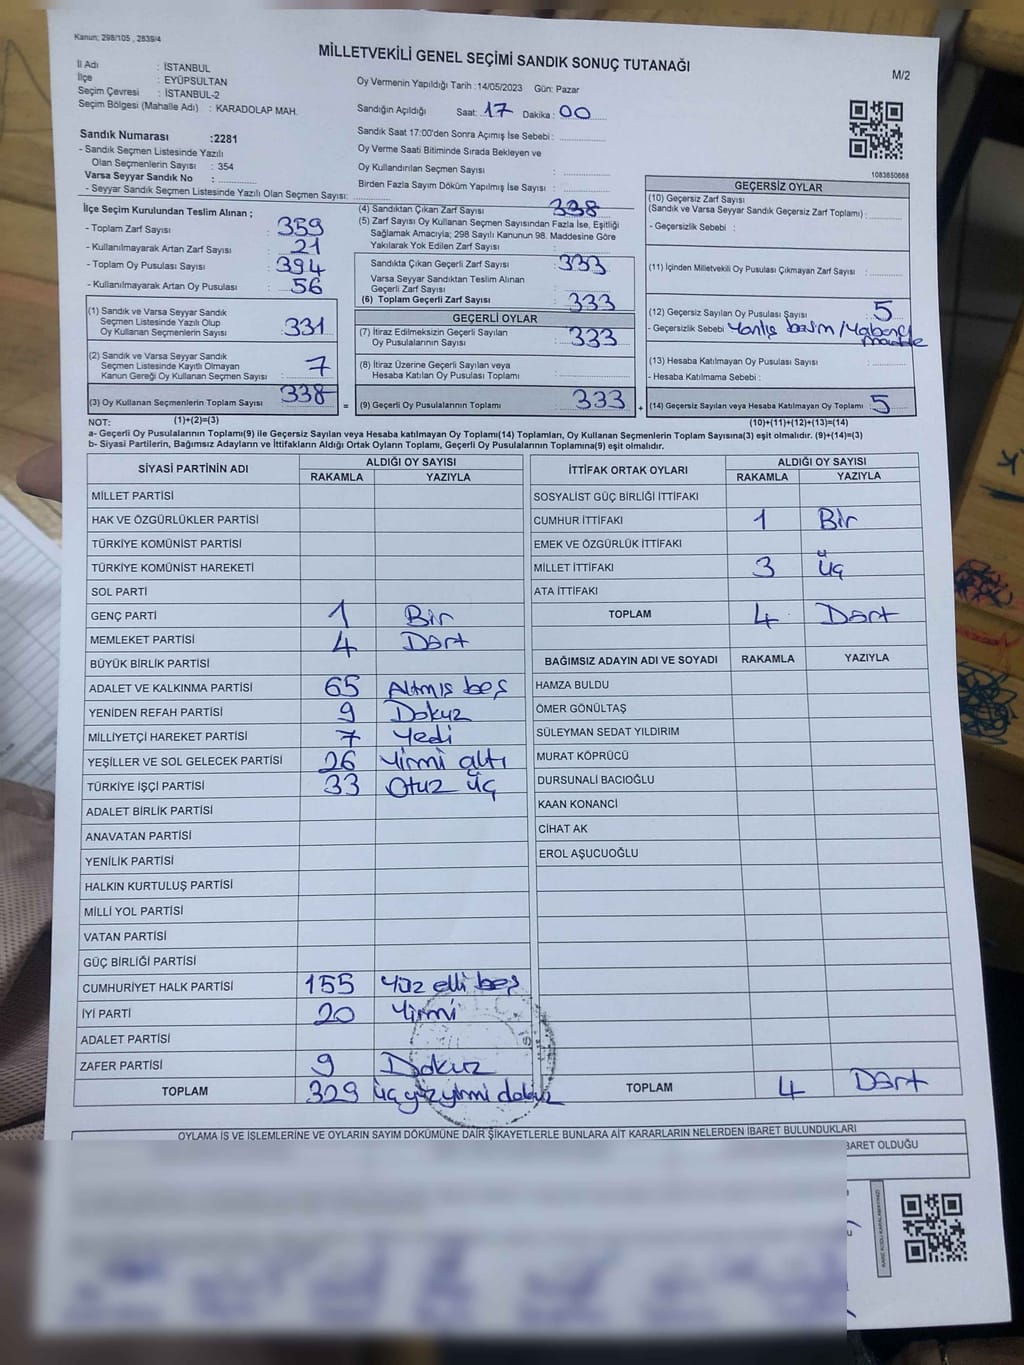 Kanun; 298/105 , 2839/4
MİLLETVEKİLİ GENEL SEÇİMİ SANDIK SONUÇ TUTANAĞI
M/2
İl Adı : İSTANBUL
İlçe : EYÜPSULTAN
Seçim Çevresi : İSTANBUL-2
Seçim Bölgesi (Mahalle Adı) : KARADOLAP MAH.
Oy Vermenin Yapıldığı Tarih :14/05/2023 Gün: Pazar
Sandığın Açıldığı Saat: 17 Dakika : 00
Sandık Saat 17:00'den Sonra Açımış İse Sebebi :
Oy Verme Saati Bitiminde Sırada Bekleyen ve
Oy Kullandırılan Seçmen Sayısı :
Birden Fazla Sayım Döküm Yapılmış İse Sayısı :
Sandık Numarası :2281
- Sandık Seçmen Listesinde Yazılı
Olan Seçmenlerin Sayısı : 354
Varsa Seyyar Sandık No :
- Seyyar Sandık Seçmen Listesinde Yazılı Olan Seçmen Sayısı:
1083850668
İlçe Seçim Kurulundan Teslim Alınan ;
- Toplam Zarf Sayısı : 359
- Kullanılmayarak Artan Zarf Sayısı : 21
- Toplam Oy Pusulası Sayısı : 394
- Kullanılmayarak Artan Oy Pusulası : 56
(1) Sandık ve Varsa Seyyar Sandık
Seçmen Listesinde Yazılı Olup
Oy Kullanan Seçmenlerin Sayısı : 331
(2) Sandık ve Varsa Seyyar Sandık
Seçmen Listesinde Kayıtlı Olmayan
Kanun Gereği Oy Kullanan Seçmen Sayısı : 7
(3) Oy Kullanan Seçmenlerin Toplam Sayısı : 338
(4) Sandıktan Çıkan Zarf Sayısı : 338
(5) Zarf Sayısı Oy Kullanan Seçmen Sayısından Fazla İse, Eşitliği
Sağlamak Amacıyla; 298 Sayılı Kanunun 98. Maddesine Göre
Yakılarak Yok Edilen Zarf Sayısı :
Sandıkta Çıkan Geçerli Zarf Sayısı : 333
Varsa Seyyar Sandıktan Teslim Alınan
Geçerli Zarf Sayısı :
(6) Toplam Geçerli Zarf Sayısı : 333
GEÇERLİ OYLAR
(7) İtiraz Edilmeksizin Geçerli Sayılan
Oy Pusulalarının Sayısı : 333
(8) İtiraz Üzerine Geçerli Sayılan veya
Hesaba Katılan Oy Pusulası Toplamı :
= (9) Geçerli Oy Pusulalarının Toplamı : 333
GEÇERSİZ OYLAR
(10) Geçersiz Zarf Sayısı
(Sandık ve Varsa Seyyar Sandık Geçersiz Zarf Toplamı) :
- Geçersizlik Sebebi :
(11) İçinden Milletvekili Oy Pusulası Çıkmayan Zarf Sayısı :
(12) Geçersiz Sayılan Oy Pusulası Sayısı : 5
- Geçersizlik Sebebi Yanlış basım/Yabancı madde
(13) Hesaba Katılmayan Oy Pusulası Sayısı :
- Hesaba Katılmama Sebebi :
+ (14) Geçersiz Sayılan veya Hesaba Katılmayan Oy Toplamı : 5
NOT: (1)+(2)=(3)
(10)+(11)+(12)+(13)=(14)
a- Geçerli Oy Pusulalarının Toplamı(9) ile Geçersiz Sayılan veya Hesaba katılmayan Oy Toplamı(14) Toplamları, Oy Kullanan Seçmenlerin Toplam Sayısına(3) eşit olmalıdır. (9)+(14)=(3)
b- Siyasi Partilerin, Bağımsız Adayların ve İttifakların Aldığı Ortak Oyların Toplamı, Geçerli Oy Pusulalarının Toplamına(9) eşit olmalıdır.
SİYASİ PARTİNİN ADI ALDIĞI OY SAYISI
RAKAMLA YAZIYLA
MİLLET PARTİSİ
HAK VE ÖZGÜRLÜKLER PARTİSİ
TÜRKİYE KOMÜNİST PARTİSİ
TÜRKİYE KOMÜNİST HAREKETİ
SOL PARTİ
GENÇ PARTİ 1 Bir
MEMLEKET PARTİSİ 4 Dört
BÜYÜK BİRLİK PARTİSİ
ADALET VE KALKINMA PARTİSİ 65 Altmış beş
YENİDEN REFAH PARTİSİ 9 Dokuz
MİLLİYETÇİ HAREKET PARTİSİ 7 Yedi
YEŞİLLER VE SOL GELECEK PARTİSİ 26 Yirmi altı
TÜRKİYE İŞÇİ PARTİSİ 33 Otuz üç
ADALET BİRLİK PARTİSİ
ANAVATAN PARTİSİ
YENİLİK PARTİSİ
HALKIN KURTULUŞ PARTİSİ
MİLLİ YOL PARTİSİ
VATAN PARTİSİ
GÜÇ BİRLİĞİ PARTİSİ
CUMHURİYET HALK PARTİSİ 155 Yüz elli beş
İYİ PARTİ 20 Yirmi
ADALET PARTİSİ
ZAFER PARTİSİ 9 Dokuz
TOPLAM 329 üç yüz yirmi dokuz
İTTİFAK ORTAK OYLARI ALDIĞI OY SAYISI
RAKAMLA YAZIYLA
SOSYALİST GÜÇ BİRLİĞİ İTTİFAKI
CUMHUR İTTİFAKI 1 Bir
EMEK VE ÖZGÜRLÜK İTTİFAKI
MİLLET İTTİFAKI 3 üç
ATA İTTİFAKI
TOPLAM 4 Dört
BAĞIMSIZ ADAYIN ADI VE SOYADI RAKAMLA YAZIYLA
HAMZA BULDU
ÖMER GÖNÜLTAŞ
SÜLEYMAN SEDAT YILDIRIM
MURAT KÖPRÜCÜ
DURSUNALİ BACIOĞLU
KAAN KONANCİ
CİHAT AK
EROL AŞUCUOĞLU
TOPLAM 4 Dört
OYLAMA İŞ VE İŞLEMLERİNE VE OYLARIN SAYIM DÖKÜMÜNE DAİR ŞİKAYETLERLE BUNLARA AİT KARARLARIN NELERDEN İBARET BULUNDUKLARI
BARET OLDUĞU